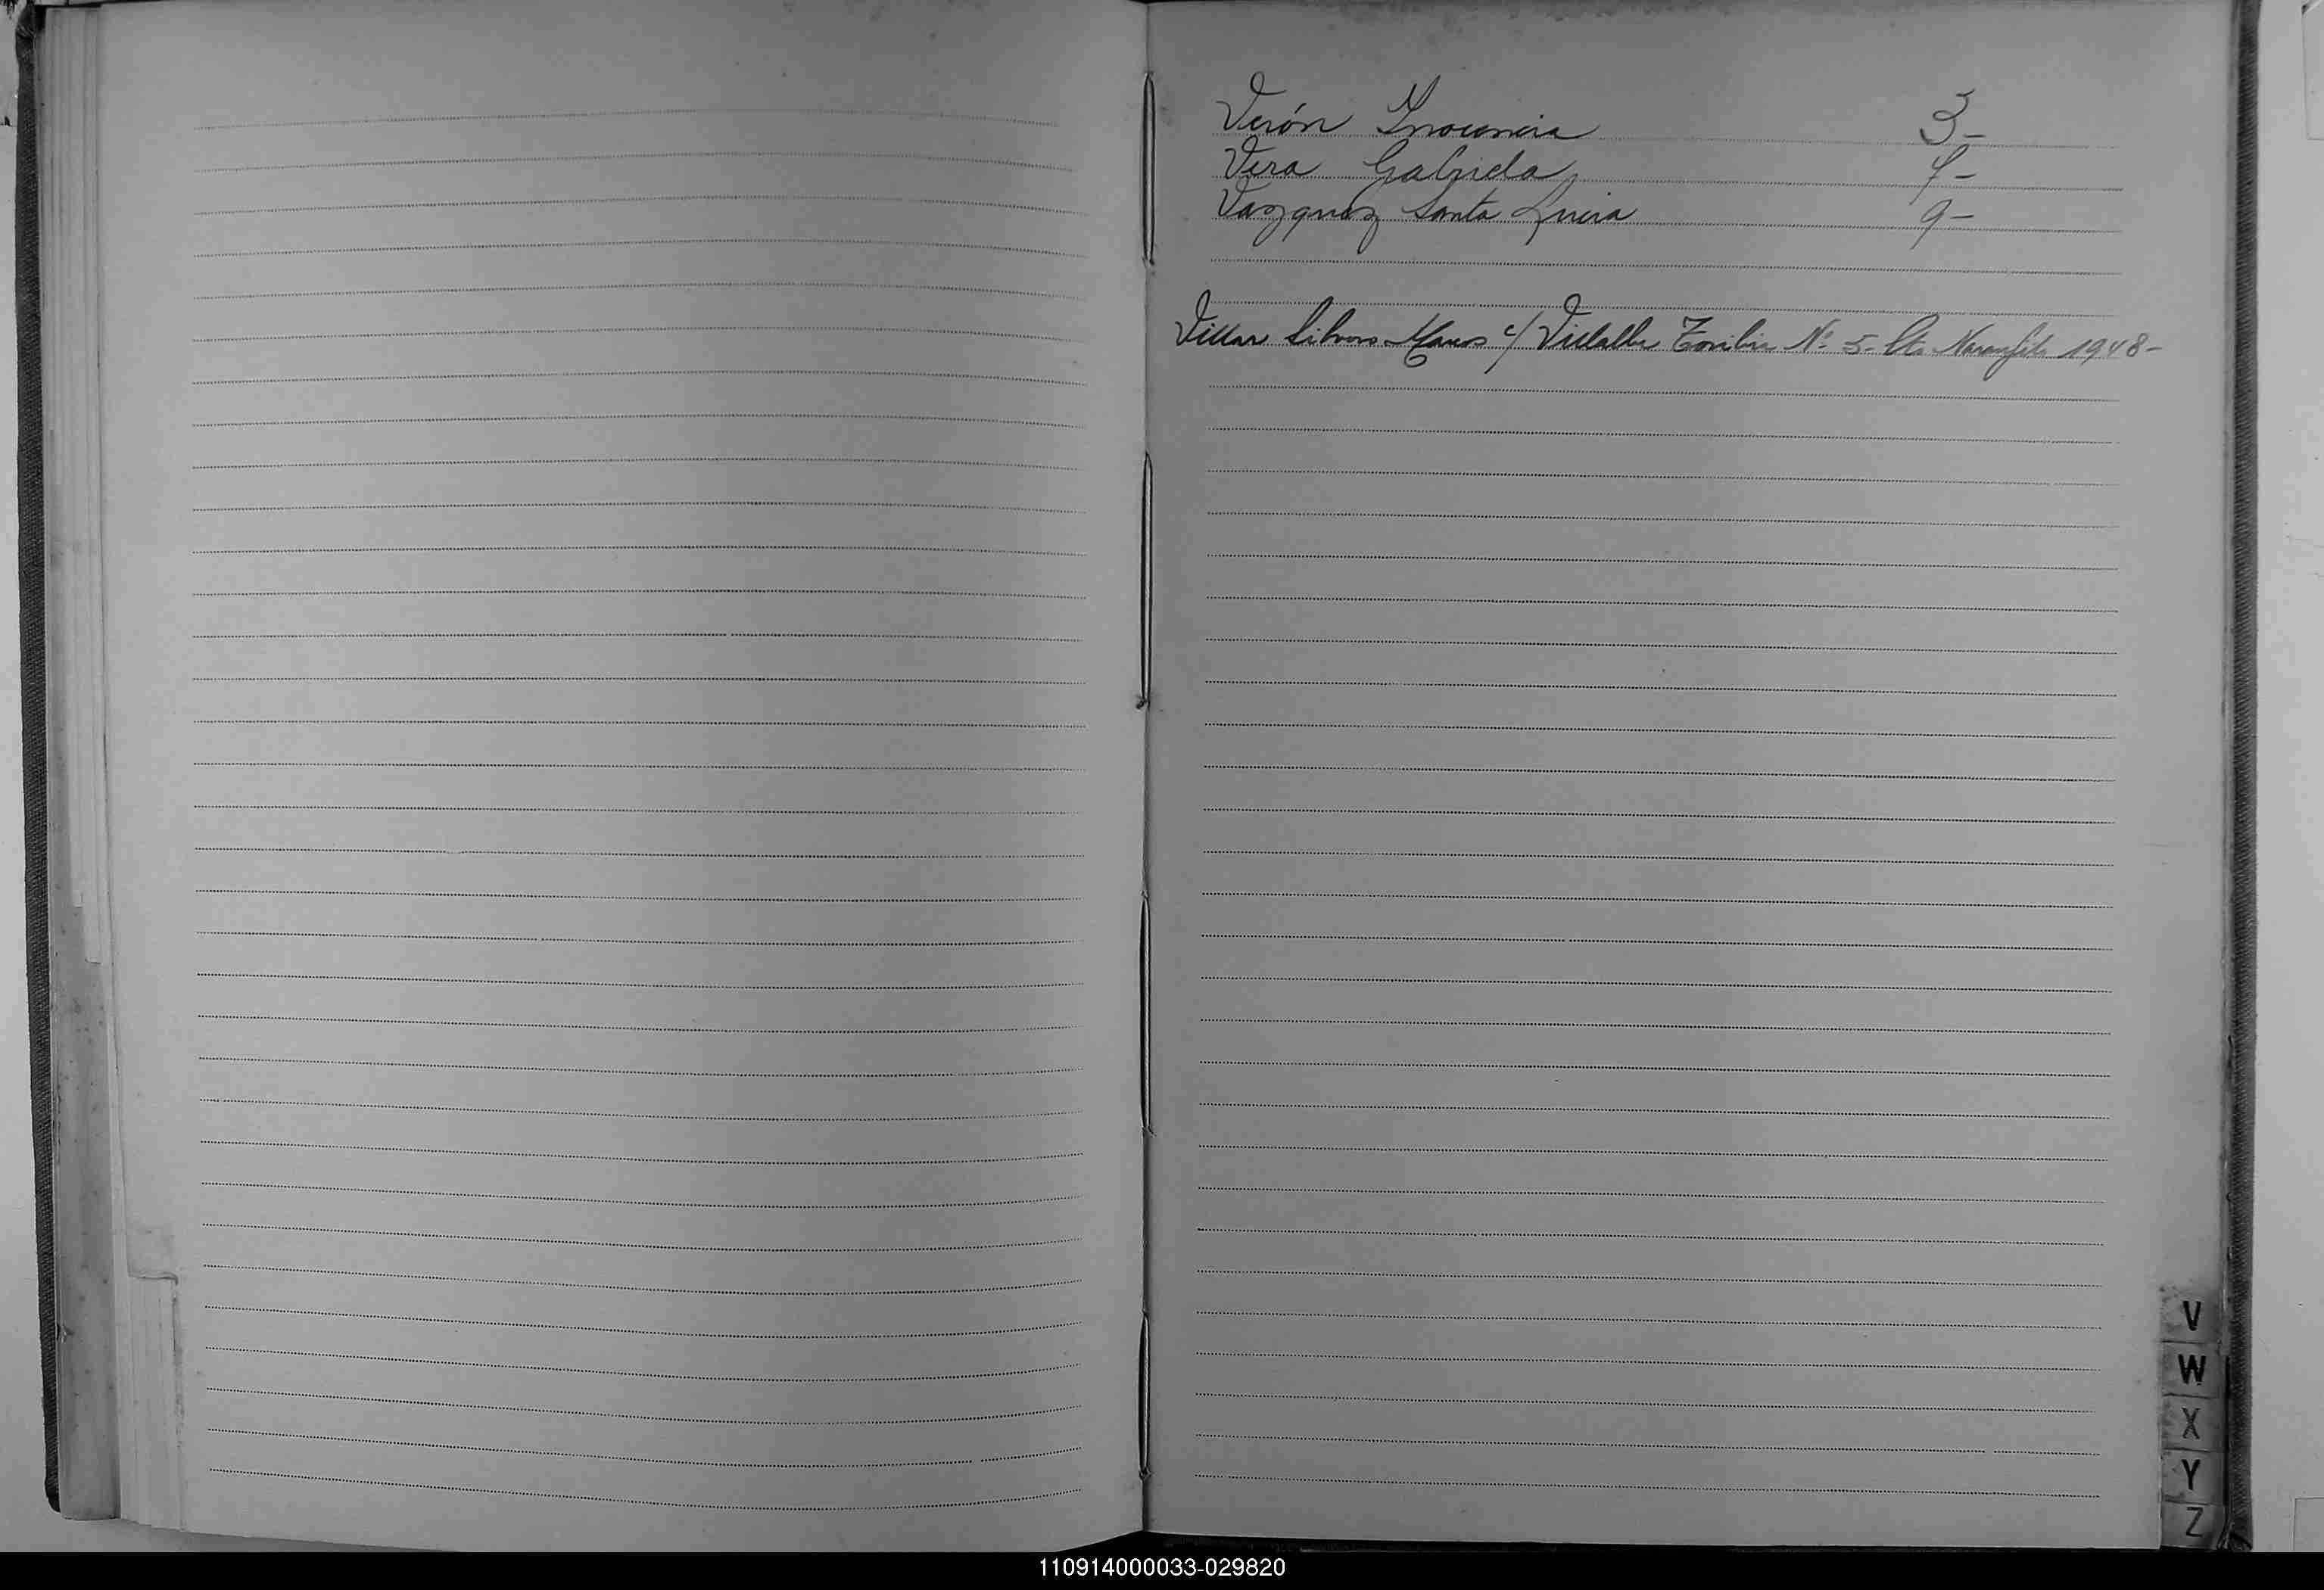 Verón Inocencia 3-
Vera Gabriela 7-
Vazquez Santa Lucia 9-
Villar Marcos c/ Villalba Toribia Nº 5. Naranjito 1948-
V
W
X
Y
Z
110914000033-029820